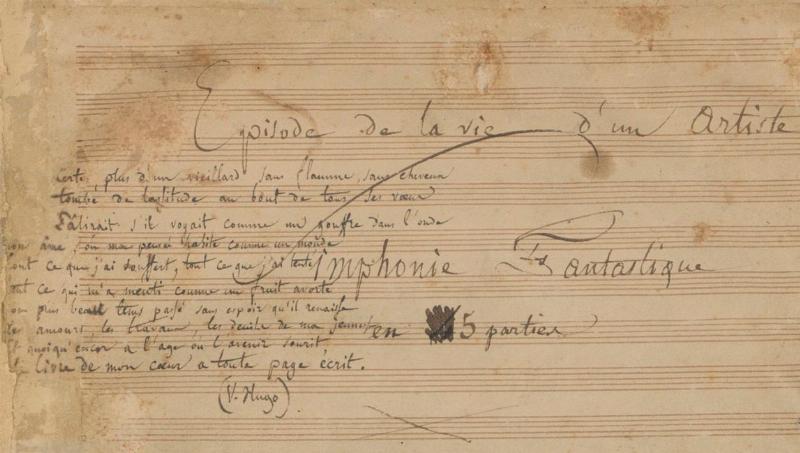 Episode de la vie d'un Artiste
Certe, plus d'un vieillard sans flamme, sans cheveux
tombé de lassitude au bout de tous ses vœux
Pâlirait s'il voyait comme un gouffre dans l'onde
on âme, où ma pensée habite comme un monde
out ce que j'ai souffert, tout ce que j'ai tenté
out ce qui m'a menti comme un fruit avorté
on plus beau tems passé sans espoir qu'il renaisse
es amours, les travaux, les deuils de ma jeunesse
t quoiqu'encor à l'age où l'avenir sourit
le livre de mon cœur a toute page écrit.
(V. Hugo)
Simphonie Fantastique
en 5 parties